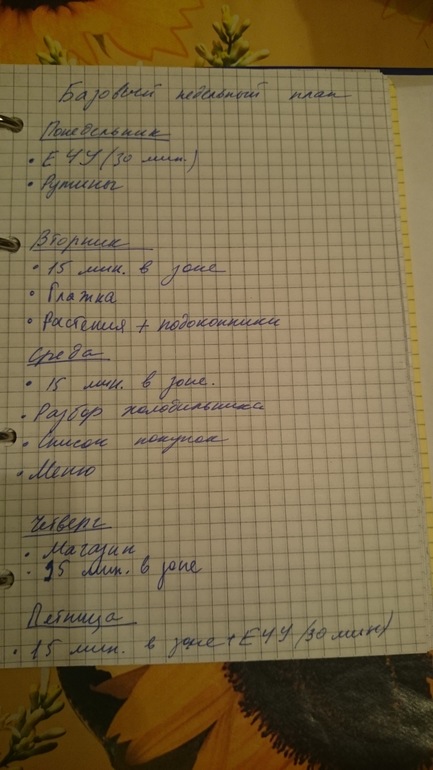 Базовый недельный план
Понедельник
• ЕЧУ (30 мин.)
• Рутины
Вторник
• 15 мин. в зоне
• Глажка
• Растения + подоконники
Среда
• 15 мин. в зоне.
• Разбор холодильника
• Список покупок
• Меню
Четверг
• Магазин
• 15 мин. в зоне
Пятница
• 15 мин. в зоне + ЕЧУ (30 мин)